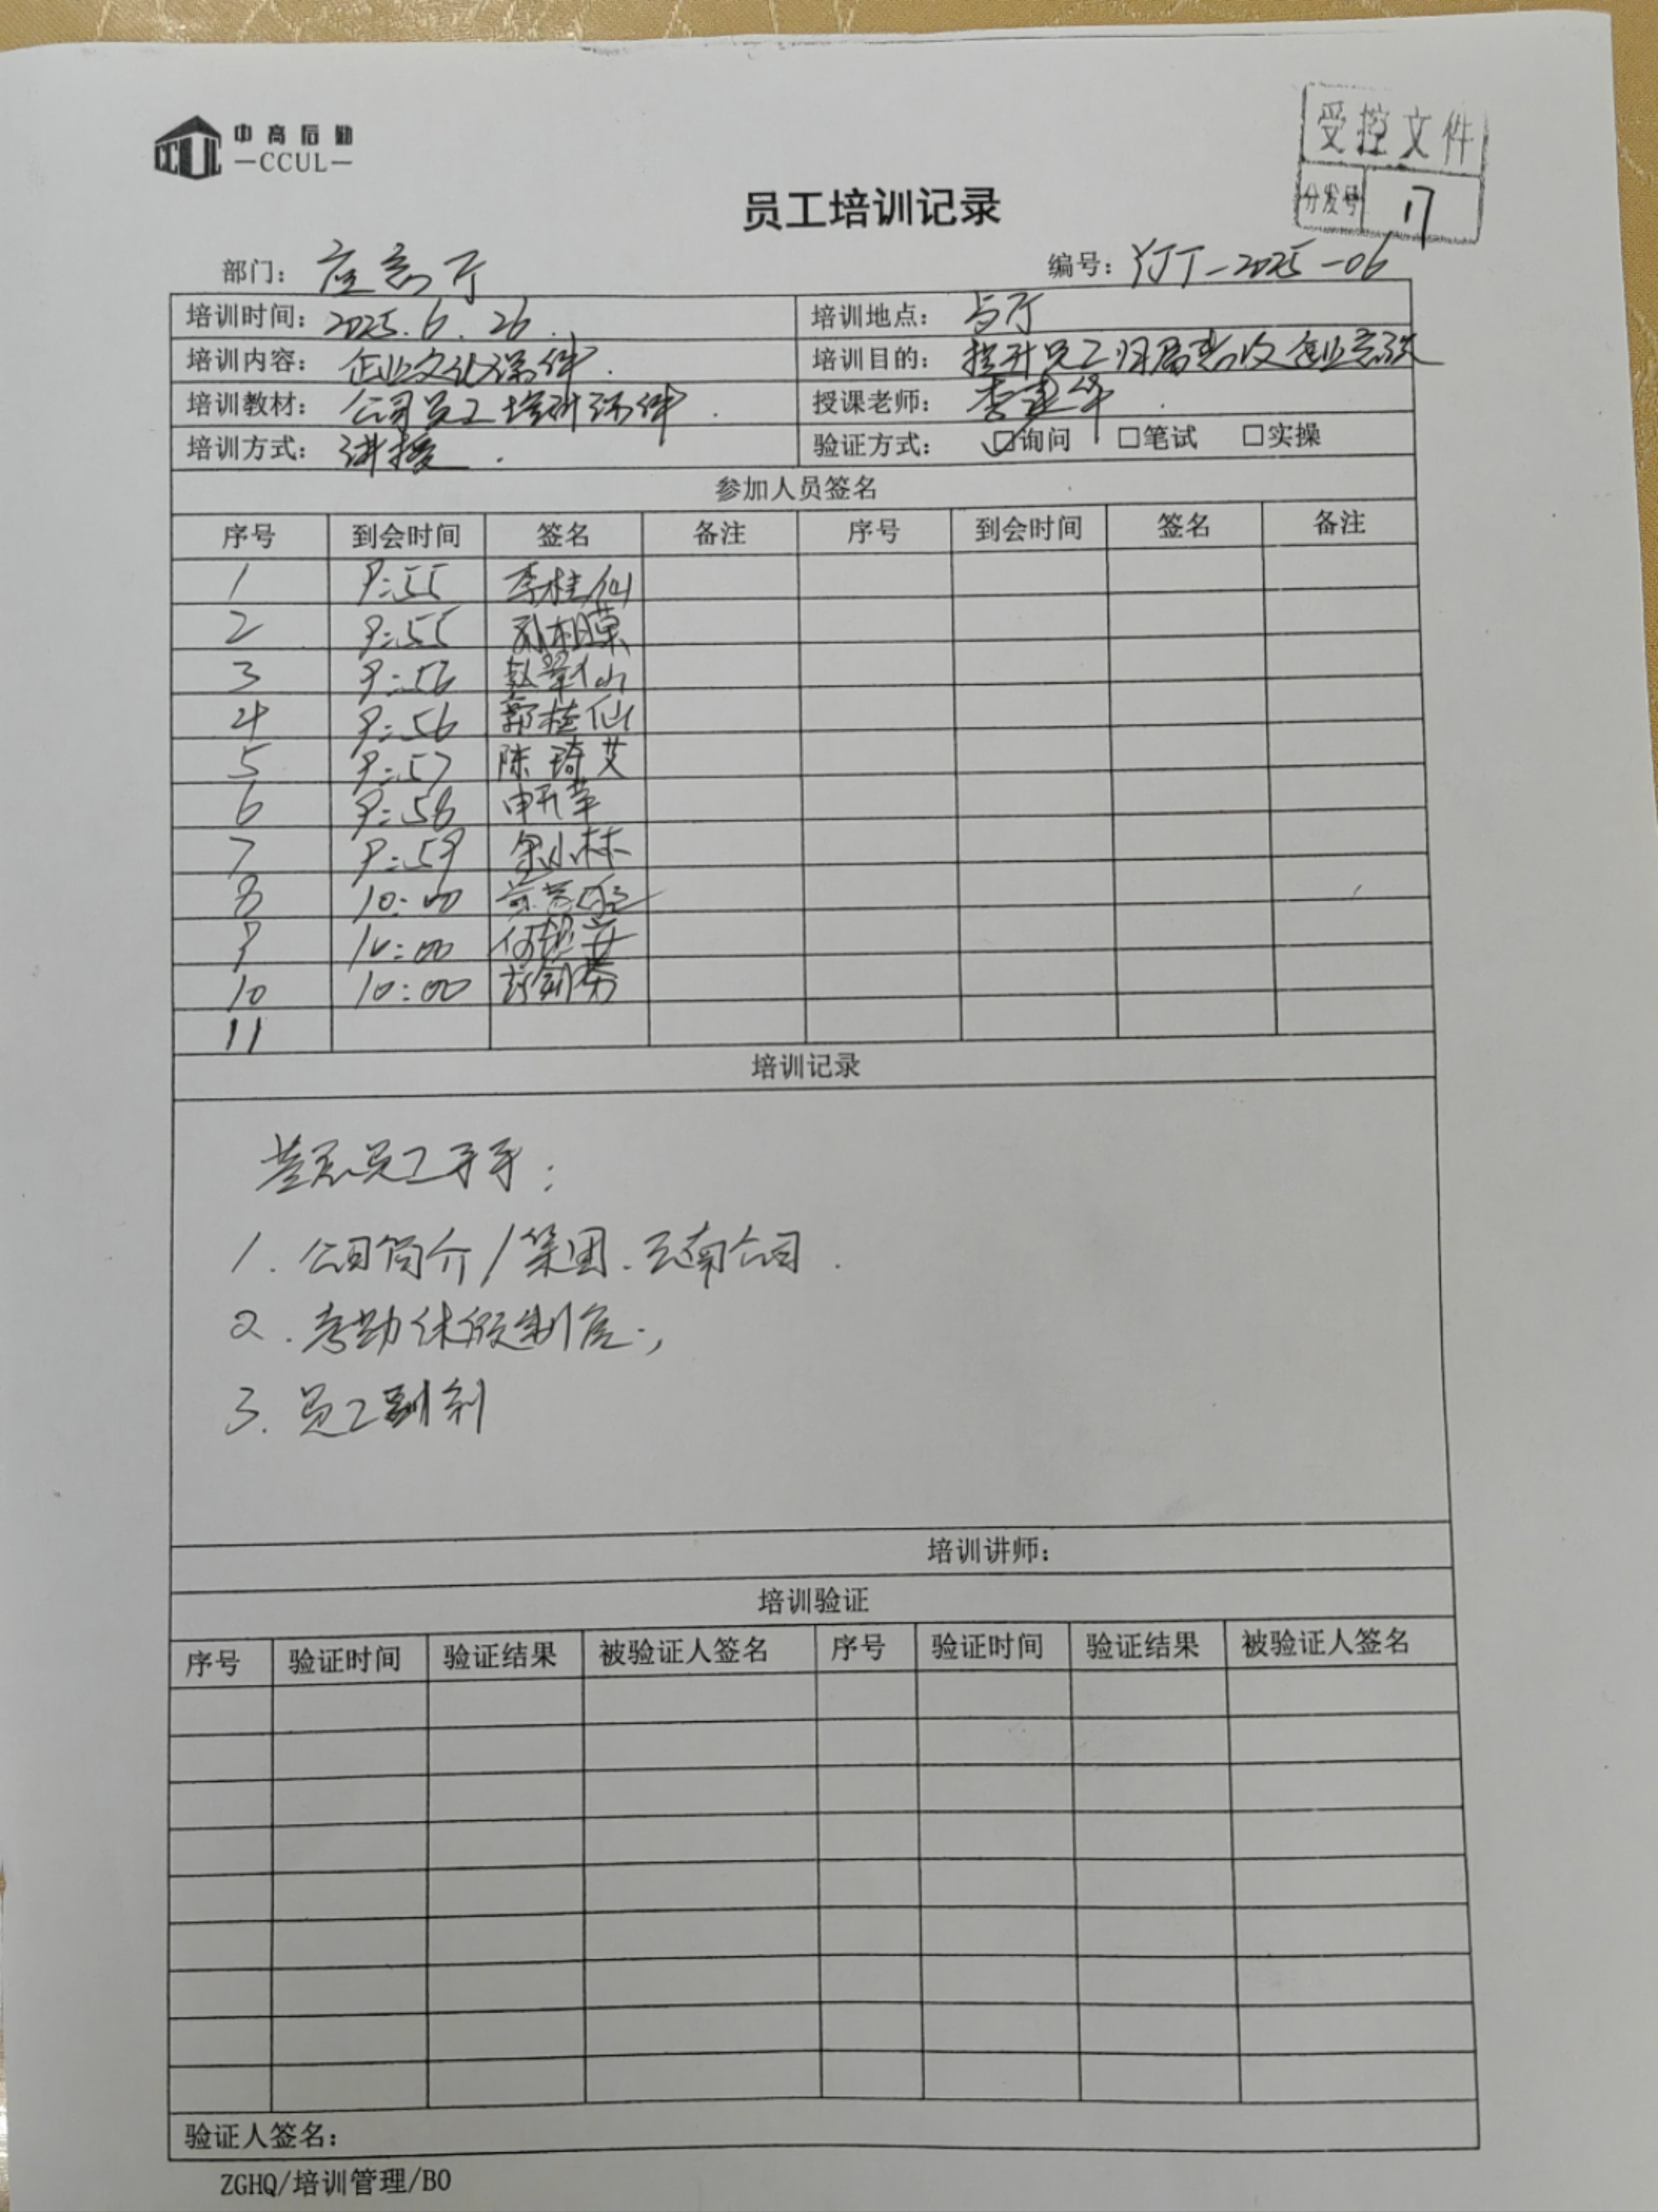 中高后勤
CCUL
—CCUL—
受控文件
分发号 17
员工培训记录
部门： 宴会厅
编号：YJT-2025-06
培训时间：2025.6.26. 培训地点：
培训内容：企业文化课件. 培训目的：提升员工归属 企业意识
培训教材：公司员工培训课件. 授课老师：李建华.
培训方式：讲授. 验证方式： ☑询问 □笔试 □实操
参加人员签名
序号 到会时间 签名 备注 序号 到会时间 签名 备注
1 9:55 李桂仙
2 9:55
3 9:56 赵翠仙
4 9:56 郭桂仙
5 9:57 陈琦艾
6 9:58
7 9:59 余小林
8 10:00
9 10:00
10 10:00
11
培训记录
员工手
1. 公司简介/集团.云南公司.
2. 考勤休假制度.,
3. 员工
培训讲师：
培训验证
序号 验证时间 验证结果 被验证人签名 序号 验证时间 验证结果 被验证人签名
验证人签名：
ZGHQ/培训管理/B0